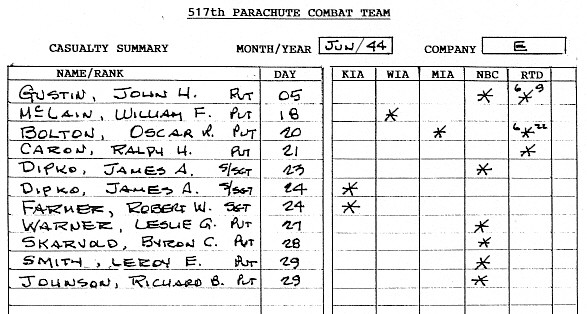 517th PARACHUTE COMBAT TEAM
CASUALTY SUMMARY MONTH/YEAR JUN/44 COMPANY E
NAME/RANK DAY KIA WIA MIA NBC RTD
GUSTIN, JOHN H. PVT 05 * 6 * 9
McLAIN, WILLIAM F. PVT 18 *
BOLTON, OSCAR R. PVT 20 * 6 * 22
CARON, RALPH H. PVT 21 *
DIPKO, JAMES A. S/SGT 23 *
DIPKO, JAMES A. S/SGT 24 *
FARMER, ROBERT W. SGT 24 *
WARNER, LESLIE G. PVT 27 *
SKARVOLD, BYRON C. PVT 28 *
SMITH, LEROY E. PVT 29 *
JOHNSON, RICHARD B. PVT 29 *